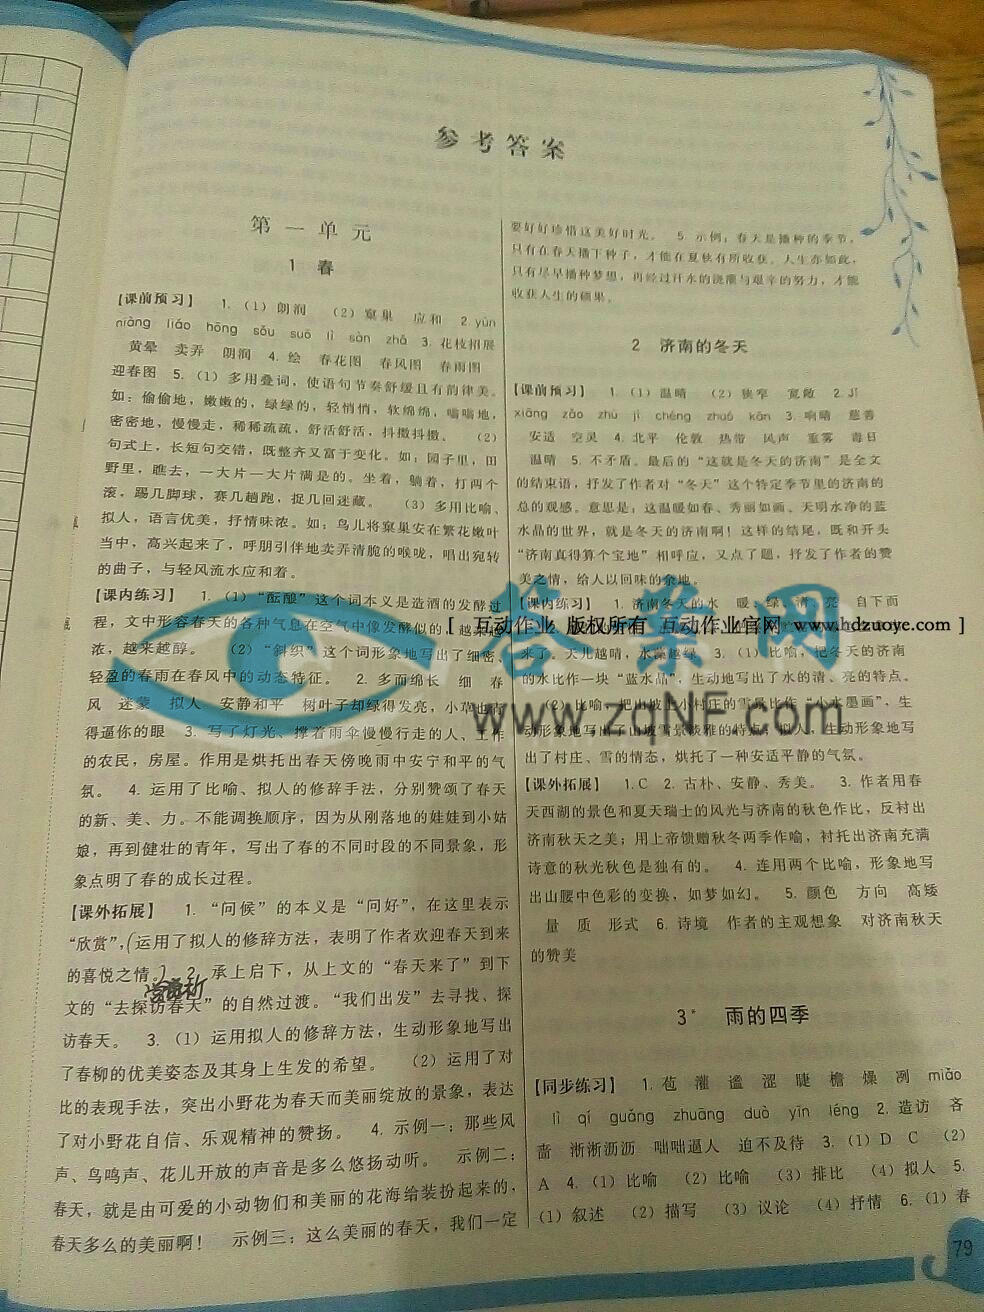 参考答案
第一单元
1 春
【课前预习】 1.（1）朗润 （2）窠巢 应和 2.yùn
niàng liáo hōng sǒu suō lì sàn zhǎ 3. 花枝招展
黄晕 卖弄 朗润 4. 绘 春花图 春风图 春雨图
迎春图 5.（1）多用叠词，使语句节奏舒缓且有韵律美。
如：偷偷地，嫩嫩的，绿绿的，轻悄悄，软绵绵，嗡嗡地，
密密地，慢慢走，稀稀疏疏，舒活舒活，抖擞抖擞。 （2）
句式上，长短句交错，既整齐又富于变化。如：园子里，田
野里，瞧去，一大片一大片满是的。坐着，躺着，打两个
滚，踢几脚球，赛几趟跑，捉几回迷藏。 （3）多用比喻、
拟人，语言优美，抒情味浓。如：鸟儿将窠巢安在繁花嫩叶
当中，高兴起来了，呼朋引伴地卖弄清脆的喉咙，唱出宛转
的曲子，与轻风流水应和着。
【课内练习】 1.（1）“酝酿”这个词本义是造酒的发酵过
程，文中形容春天的各种气息在空气中像发酵似的，越来越
浓，越来越醇。 （2）“斜织”这个词形象地写出了细密、
轻盈的春雨在春风中的动态特征。 2. 多而绵长 细 春
风 迷蒙 拟人 安静和平 树叶子却绿得发亮，小草也青
得逼你的眼 3. 写了灯光，撑着雨伞慢慢行走的人、工作
的农民，房屋。作用是烘托出春天傍晚雨中安宁和平的气
氛。 4. 运用了比喻、拟人的修辞手法，分别赞颂了春天
的新、美、力。不能调换顺序，因为从刚落地的娃娃到小姑
娘，再到健壮的青年，写出了春的不同时段的不同景象，形
象点明了春的成长过程。
【课外拓展】 1. “问候”的本义是“问好”，在这里表示
“欣赏”，（运用了拟人的修辞方法，表明了作者欢迎春天到来
的喜悦之情。） 2. 承上启下，从上文的“春天来了”到下
文的“去探访春天”的自然过渡。“我们出发”去寻找、探
访春天。 3.（1）运用拟人的修辞方法，生动形象地写出
了春柳的优美姿态及其身上生发的希望。 （2）运用了对
比的表现手法，突出小野花为春天而美丽绽放的景象，表达
了对小野花自信、乐观精神的赞扬。 4. 示例一：那些风
声、鸟鸣声、花儿开放的声音是多么悠扬动听。 示例二：
春天，就是由可爱的小动物们和美丽的花海给装扮起来的，
春天多么的美丽啊！ 示例三：这么美丽的春天，我们一定
要好好珍惜这美好时光。 5. 示例：春天是播种的季节，
只有在春天播下种子，才能在夏秋有所收获。人生亦如此，
只有尽早播种梦想，再经过汗水的浇灌与艰辛的努力，才能
收获人生的硕果。
2 济南的冬天
【课前预习】 1.（1）温晴 （2）狭窄 宽敞 2.Jǐ
xiāng zǎo zhù jì chéng zhuó kān 3. 响晴 慈善
安适 空灵 4. 北平 伦敦 热带 风声 重雾 毒日
温晴 5. 不矛盾。最后的“这就是冬天的济南”是全文
的结束语，抒发了作者对“冬天”这个特定季节里的济南的
总的观感。意思是：这温暖如春、秀丽如画、天明水净的蓝
水晶的世界，就是冬天的济南啊！这样的结尾，既和开头
“济南真得算个宝地”相呼应，又点了题，抒发了作者的赞
美之情，给人以回味的余地。
【课内练习】 1. 济南冬天的水 暖、绿、清、亮 自下而
[ 互动作业 版权所有 互动作业官网 www.hdzuoye.com ]
来了，天儿越晴，水藻越绿 3.（1）比喻，把冬天的济南
的水比作一块“蓝水晶”，生动地写出了水的清、亮的特点。
（2）比喻，把出坡上小村庄的雪景比作“小水墨画”，生
动形象地写出了山坡雪景淡雅的特点；拟人，生动形象地写
出了村庄、雪的情态，烘托了一种安适平静的气氛。
答案网
www.zqNF.com
【课外拓展】 1.C 2. 古朴、安静、秀美。 3. 作者用春
天西湖的景色和夏天瑞士的风光与济南的秋色作比，反衬出
济南秋天之美；用上帝馈赠秋冬两季作喻，衬托出济南充满
诗意的秋光秋色是独有的。 4. 连用两个比喻，形象地写
出山腰中色彩的变换，如梦如幻。 5. 颜色 方向 高矮
量 质 形式 6. 诗境 作者的主观想象 对济南秋天
的赞美
3* 雨的四季
【同步练习】 1. 苞 灌 谧 涩 睫 檐 燥 冽 miǎo
lì qí guǎng zhuāng duò yīn léng 2. 造访 吝
啬 淅淅沥沥 咄咄逼人 迫不及待 3.（1）D C （2）
A 4.（1）比喻 （2）比喻 （3）排比 （4）拟人 5.
（1）叙述 （2）描写 （3）议论 （4）抒情 6.（1）春
79